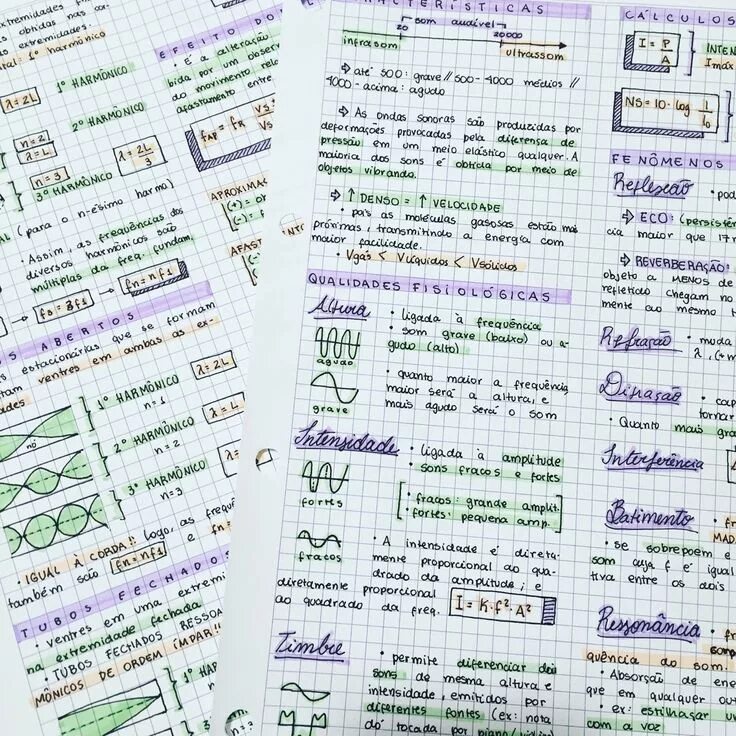 extremidades
obtidas nas
as extremidades.
1º harmônico
λ = 2L
1º HARMÔNICO
2º HARMÔNICO
n = 2
λ = L
n = 3
3º HARMÔNICO
λ = 2L/3
(para o n-ésimo harmo)
• Assim, as frequências dos
diversos harmônicos são
múltiplas da freq. fundam.
fn = nf1
EFEITO DO
• é a alteração
bida por um obser
do movimento rela
afastamento entre
APROXIMA
AFAST
ABERTOS
estacionárias que se formam
ventres em ambas as ex-
nó
1º HARMÔNICO
n = 1
λ = 2L
2º HARMÔNICO
n = 2
λ = L
3º HARMÔNICO
n = 3
• IGUAL À CORDA!! Logo, as frequên
também são fn = nf1 e
TUBOS FECHADOS
• ventres em uma extremi
na extremidade fechada
• TUBOS FECHADOS RESSOA
MÔNICOS DE ORDEM ÍMPAR!!
1º HAR
CARACTERÍSTICAS
som audível
20 20000
infrasom ultrassom
⇒ até 500: grave // 500-4000 médios //
4000 - acima: agudo
⇒ As ondas sonoras são produzidas por
deformações provocadas pela diferensa de
pressão em um meio elástico qualquer. A
maioria dos sons é obtida por meio de
objetos vibrando.
⇒ ↑ DENSO = ↑ VELOCIDADE
• pois as moléculas gasosas estão mais
próximas, transmitindo a energia com
maior facilidade.
• Vgás < Vlíquidos < Vsólidos
QUALIDADES FISIOLÓGICAS
Altura
• ligada à frequência
• som grave (baixo) ou a-
gudo (alto)
agudo
• quanto maior a frequência,
maior será a altura, e
mais agudo será o som
grave
Intensidade
• ligada à amplitude
• sons fracos e fortes
fortes
• fracos: grande amplit.
• fortes: pequena amp.
fracos
• A intensidade é direta-
mente proporcional ao qua-
drado da amplitude; e
diretamente proporcional
ao quadrado da freq. I = K·f²·A²
Timbre
• permite diferenciar dois
sons de mesma altura e
intensidade, emitidos por
diferentes fontes (ex: nota
dó tocada por piano/
CÁLCULOS
I = P/A
INTEN
Imáx
NS = 10 · log I/I0
FENÔMENOS
Reflexão
⇒ ECO: (persistên
cia maior que 17
⇒ REVERBERAÇÃO:
objeto a MENOS de
refletido chegam no
mente ao mesmo
Refração • muda
Difração • cap
tornar
• Quanto mais gra
Interferência
Batimento
• se sobrepoem e
som cuja f é igual
tiva entre os dois
Ressonância
quência do som.
• Absorção de ene
que em qualquer out
• ex: estilhaçar u
com a voz